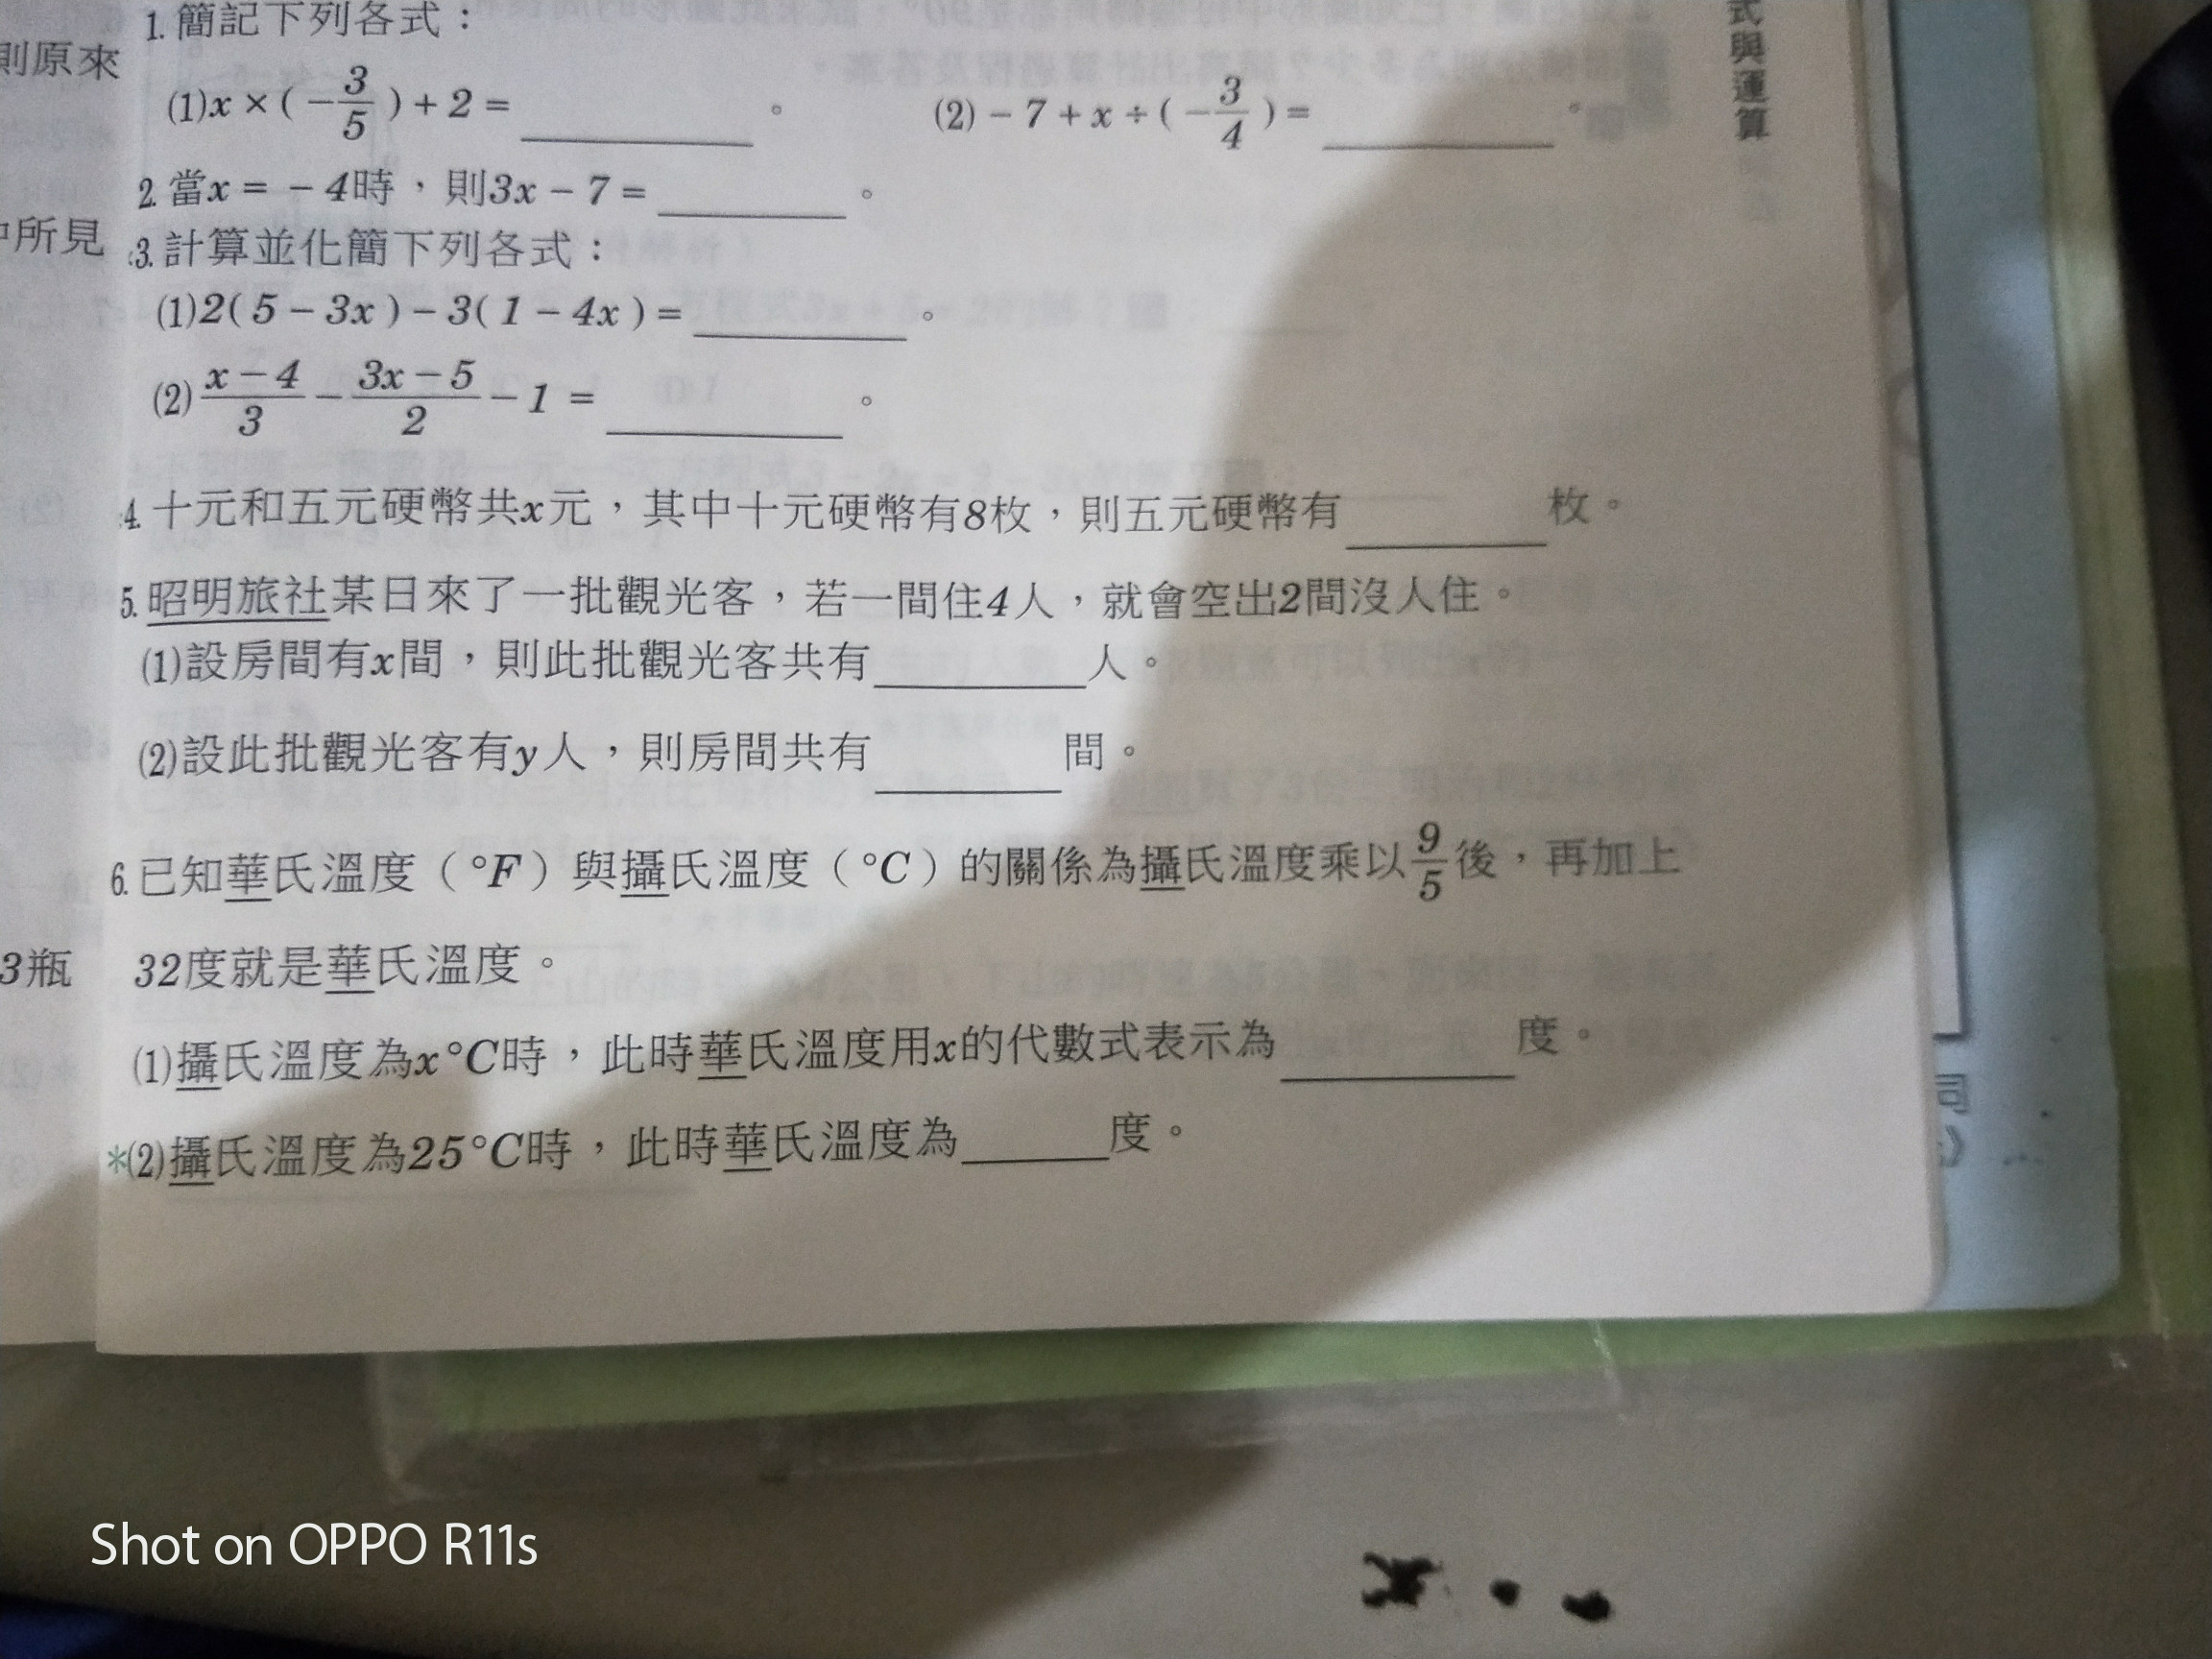 則原來
中所見
3瓶
1.簡記下列各式：
(1)x×(－3/5)＋2＝________。 (2)－7＋x÷(－3/4)＝________。
2.當x＝－4時，則3x－7＝________。
3.計算並化簡下列各式：
(1)2(5－3x)－3(1－4x)＝________。
(2)x－4/3－3x－5/2－1＝________。
4.十元和五元硬幣共x元，其中十元硬幣有8枚，則五元硬幣有________枚。
5.昭明旅社某日來了一批觀光客，若一間住4人，就會空出2間沒人住。
(1)設房間有x間，則此批觀光客共有________人。
(2)設此批觀光客有y人，則房間共有________間。
6.已知華氏溫度（°F）與攝氏溫度（°C）的關係為攝氏溫度乘以9/5後，再加上
32度就是華氏溫度。
(1)攝氏溫度為x°C時，此時華氏溫度用x的代數式表示為________度。
*(2)攝氏溫度為25°C時，此時華氏溫度為______度。
式與運算
Shot on OPPO R11s